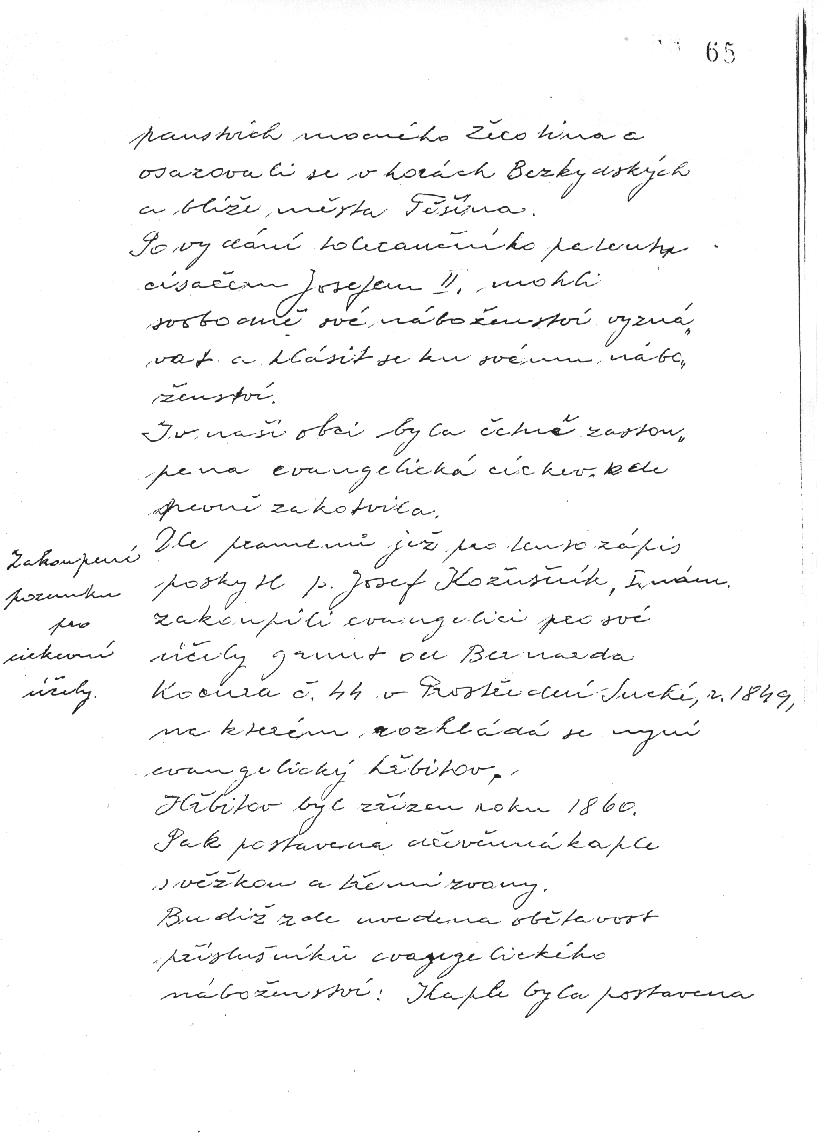 65
panstvích mocného Žerotína a
osazovali se v horách Bezkydských
a blíže města Těšína.
Po vydání tolerančního patentu
císařem Josefem II. mohli
svobodně své náboženství vyzná„
vat a hlásit se ku svému nábo„
ženství.
I v naší obci byla četně zastou„
pena evangelická církev, kde
pevně zakotvila.
Zakoupení
pozemku
pro
církevní
účely.
Dle pramenů jež pro tento zápis
poskytl p. Josef Kožušník,
zakoupili evangelici pro své
účely grunt od Bernarda
Kocura č. 44 v Prostřední Suché, r. 1849,
na kterém rozkládá se nyní
evangelický hřbitov.
Hřbitov byl zřízen roku 1860.
Pak postavena dřevěnná kaple
s věžkou a třemi zvony.
Budiž zde uvedena obětavost
příslušníků evangelického
náboženství: Kaple byla postavena